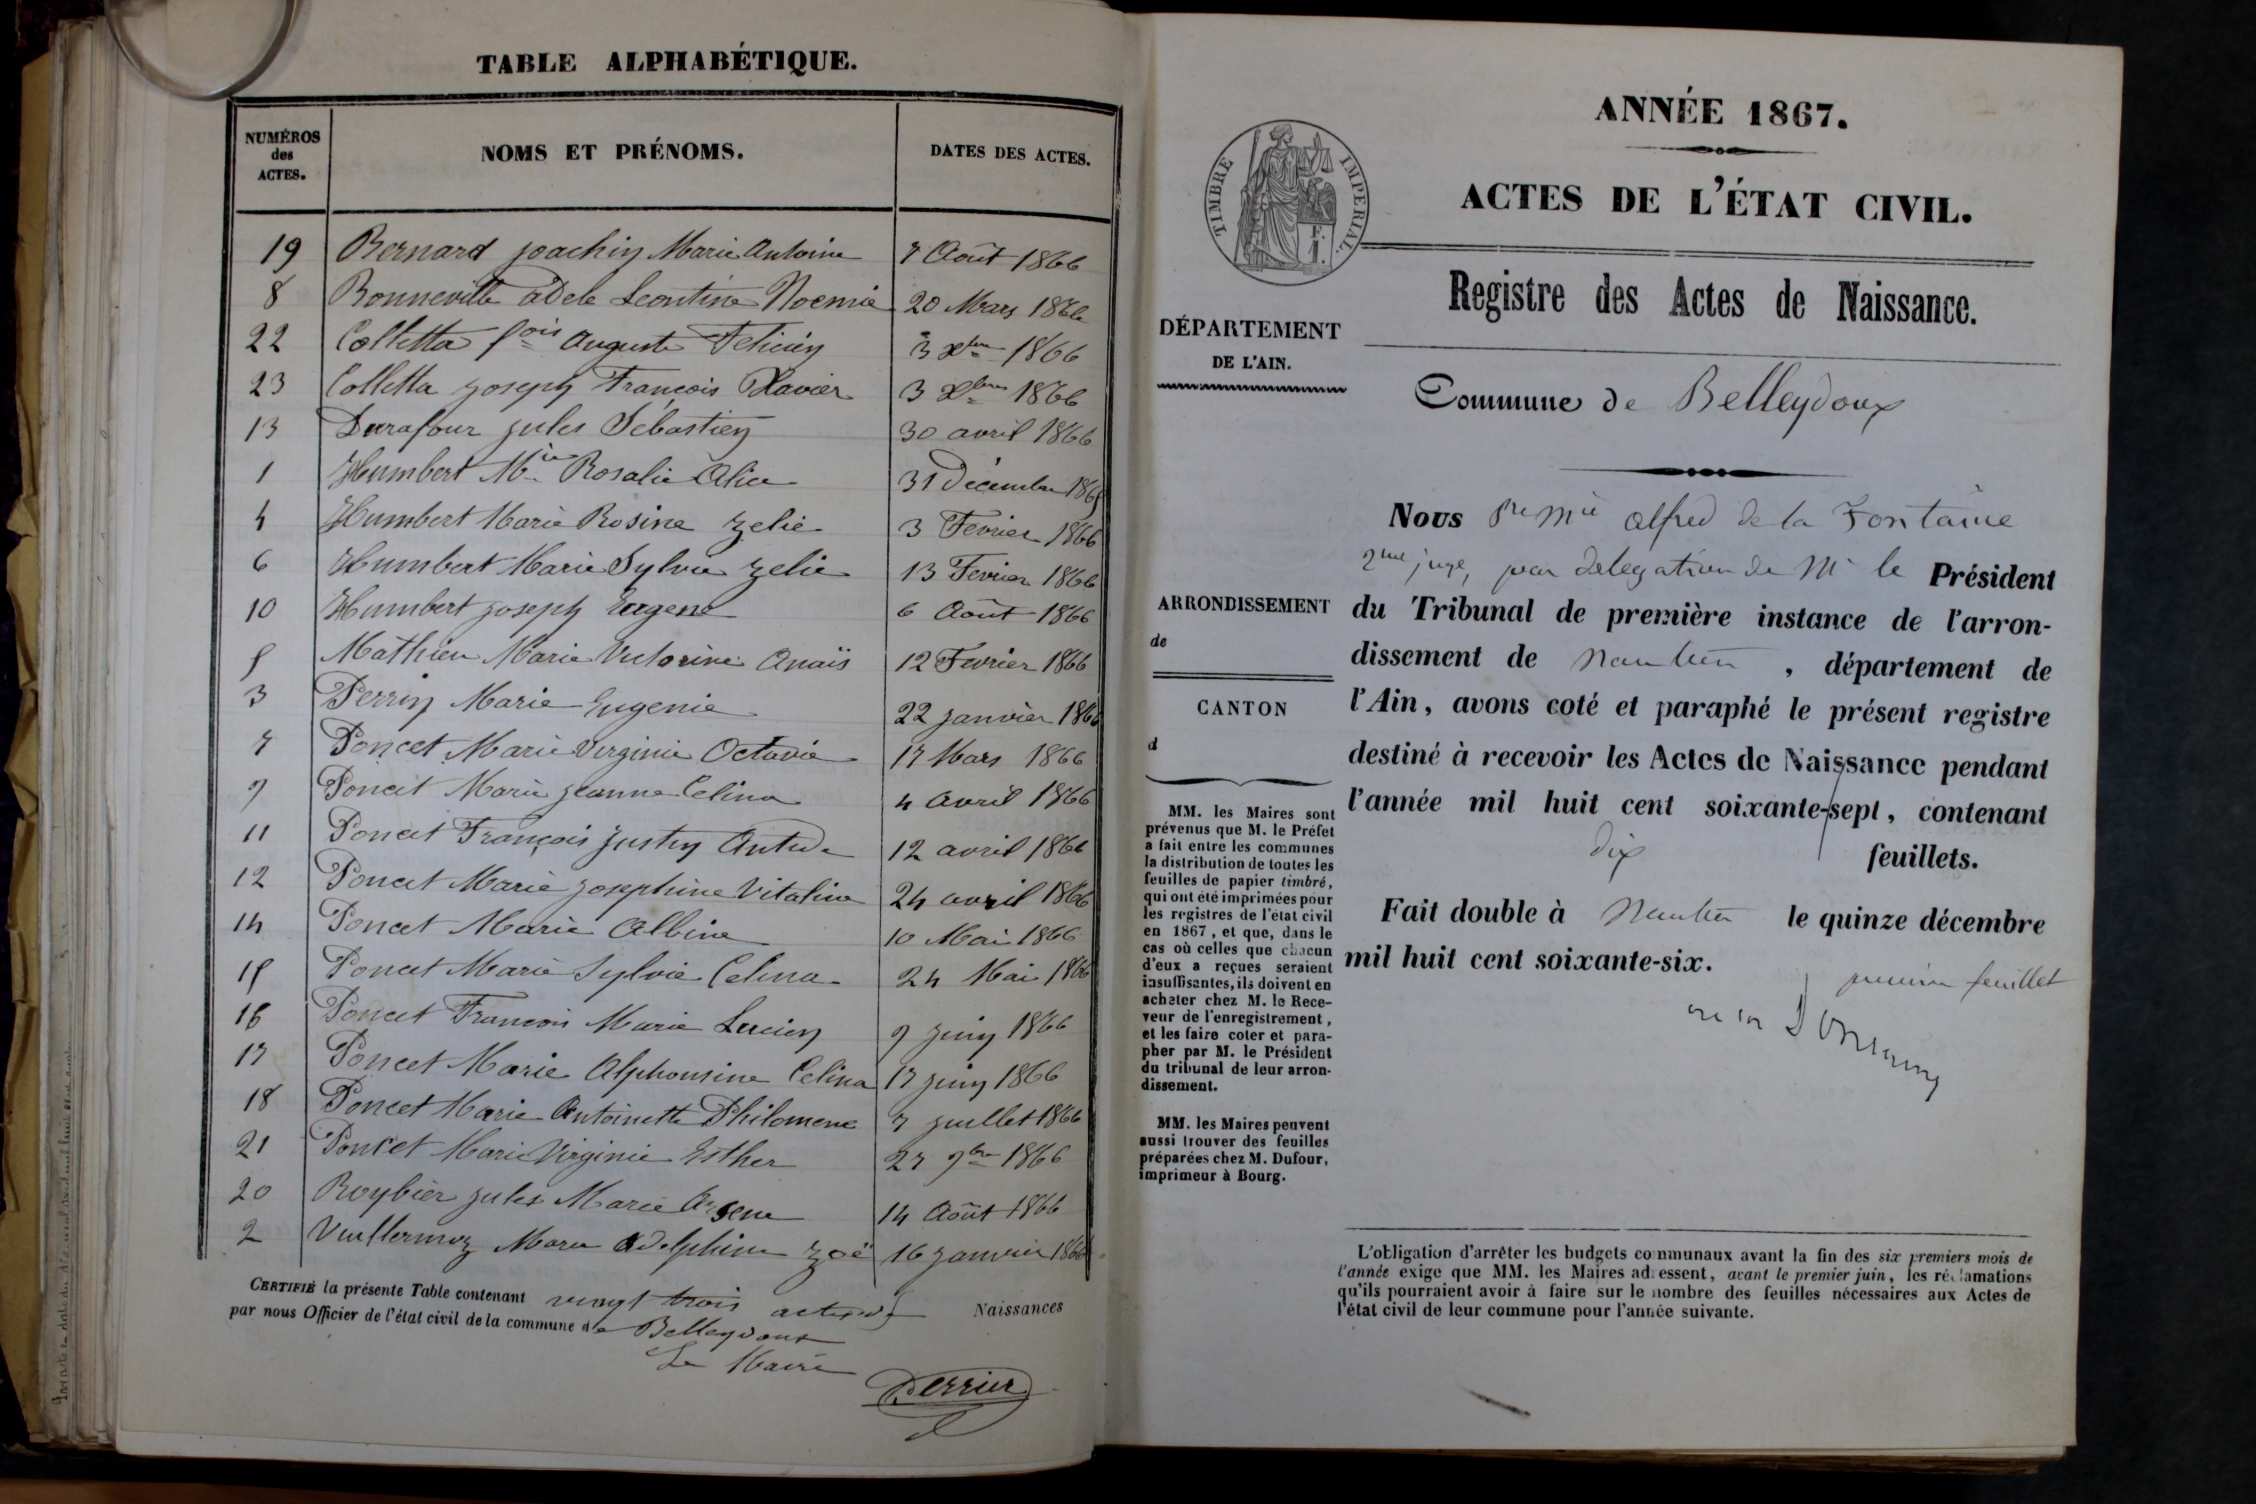 TABLE ALPHABÉTIQUE.
NUMÉROS des ACTES. NOMS ET PRÉNOMS. DATES DES ACTES.
19 Bernard joachin Marie Antoine 7 Août 1866
8 Bonneville adele Leontine Noemie 20 Mars 1866
22 Colletta fois Auguste Felicien 3 Xbre 1866
23 Colletta joseph François Xavier 3 Xbre 1866
13 Durafour jules Sébastien 30 avril 1866
1 Humbert Mie Rosalie Alice 31 Décembre 1865
4 Humbert Marie Rosine zelie 3 Fevrier 1866
6 Humbert Marie Sylvie zelie 13 Fevrier 1866
10 Humbert joseph Eugene 6 Août 1866
5 Mathieu Marie Victorine Anaïs 12 Fevrier 1866
3 Perrin Marie Eugenie 22 janvier 1866
7 Poncet Marie Virginie Octavie 17 Mars 1866
9 Poncet Marie jeanne Celina 4 avril 1866
11 Poncet François justin 12 avril 1866
12 Poncet Marie josephine Vitaline 24 avril 1866
14 Poncet Marie Albine 10 Mai 1866
15 Poncet Marie Sylvie Celina 24 Mai 1866
16 Poncet François Marie Lucien 9 juin 1866
17 Poncet Marie Alphonsine Celina 17 juin 1866
18 Poncet Marie Antoinette Philomene 7 juillet 1866
21 Poncet Marie Virginie Esther 27 9bre 1866
20 Roybier jules Marie Arsene 14 Août 1866
2 Vuillermoz Marie Adelphine zoé 16 janvier 1866
CERTIFIÉ la présente Table contenant vingt trois actes de Naissances
par nous Officier de l'état civil de la commune de Belleydoux
Le Maire
Perrier
ANNÉE 1867.
TIMBRE IMPERIAL.
ACTES DE L'ÉTAT CIVIL.
Registre des Actes de Naissance.
DÉPARTEMENT
DE L'AIN.
Commune de Belleydoux
Nous Alfred de la Fontaine
2me juge, par delegation de Mr le Président
ARRONDISSEMENT
de
du Tribunal de première instance de l'arron-
dissement de Nantua, département de
CANTON
d
l'Ain, avons coté et paraphé le présent registre
destiné à recevoir les Actes de Naissance pendant
l'année mil huit cent soixante-sept, contenant
dix feuillets.
Fait double à Nantua le quinze décembre
mil huit cent soixante-six.
premier feuillet
MM. les Maires sont
prévenus que M. le Préfet
a fait entre les communes
la distribution de toutes les
feuilles de papier timbré,
qui ont été imprimées pour
les registres de l'état civil
en 1867, et que, dans le
cas où celles que chacun
d'eux a reçues seraient
insuffisantes, ils doivent en
acheter chez M. le Rece-
veur de l'enregistrement,
et les faire coter et para-
pher par M. le Président
du tribunal de leur arron-
dissement.
MM. les Maires peuvent
aussi trouver des feuilles
préparées chez M. Dufour,
imprimeur à Bourg.
L'obligation d'arrêter les budgets communaux avant la fin des six premiers mois de
l'année exige que MM. les Maires adressent, avant le premier juin, les réclamations
qu'ils pourraient avoir à faire sur le nombre des feuilles nécessaires aux Actes de
l'état civil de leur commune pour l'année suivante.